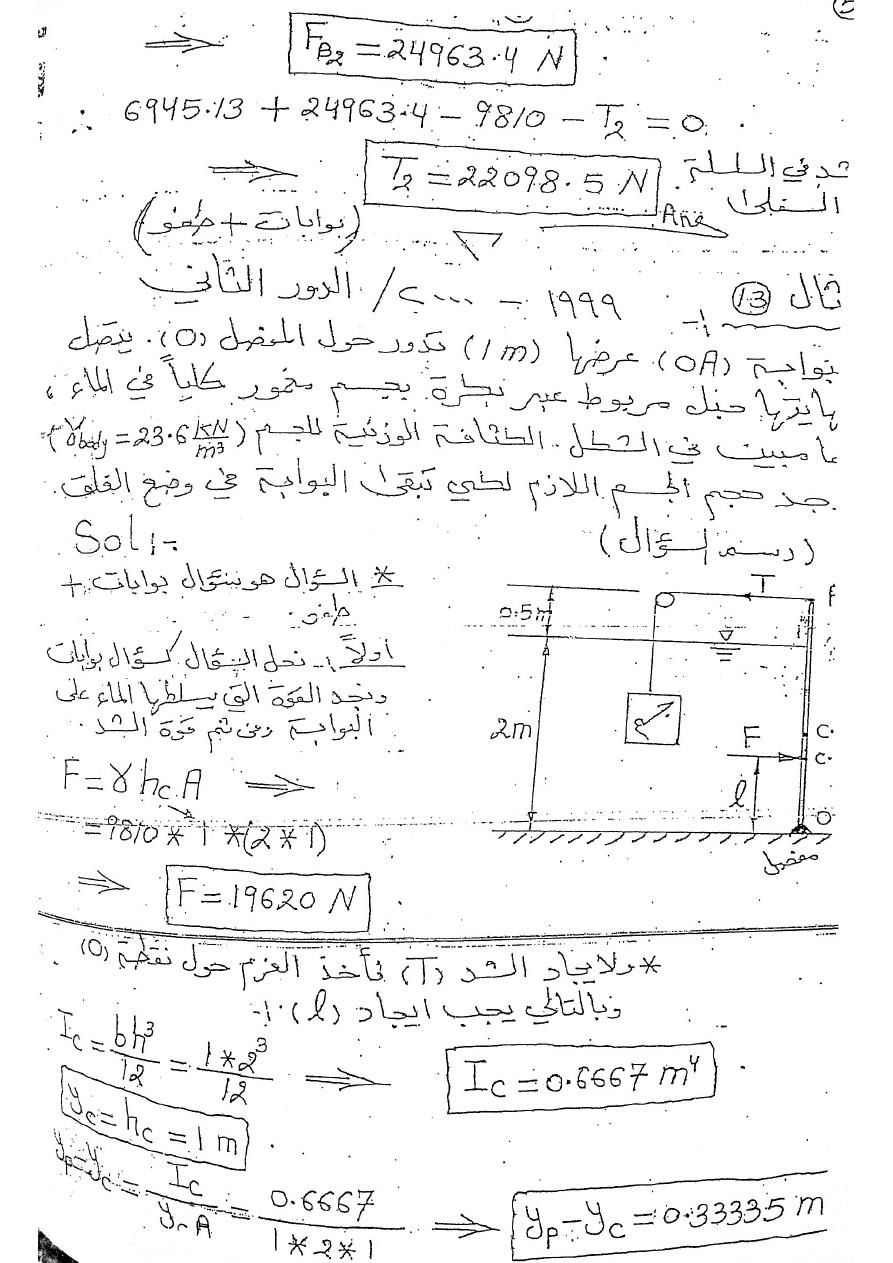 ⇒ F_B2 = 24963.4 N
∴ 6945.13 + 24963.4 − 9810 − T2 = 0
⇒ T2 = 22098.5 N
Ans
(بوابات + طفو)
ثال (13) 1999 - ..../ الدور الثاني
بوابة (OA) عرضها (1m) تدور حول المفصل (O). يتصل
حبل مربوط عبر بكرة بجسم مغمور كلياً في الماء ،
مبين في الشكل. الكثافة الوزنية للجسم (γbody = 23.6 KN/m³)
جد حجم الجسم اللازم لكي تبقى البوابة في وضع الغلق.
(رسم السؤال)
Sol:-
* السؤال هو سؤال بوابات +
طفو.
أولاً:- نحل السؤال كسؤال بوابات
ونجد القوة التي يسلطها الماء على
البوابة ومن ثم قوة الشد.
T
0.5m
جسم
2m
F
C.
C.
l
O
مفصل
F = γ hc A ⇒
= 9810 * 1 * (2 * 1)
⇒ F = 19620 N
* ولايجاد الشد (T) نأخذ العزم حول نقطة (O)
وبالتالي يجب ايجاد (l):-
Ic = bh³/12 = 1*2³/12 ⇒ Ic = 0.6667 m⁴
yc = hc = 1 m
yp − yc = Ic/yc A = 0.6667/1*2*1 ⇒ yp − yc = 0.33335 m